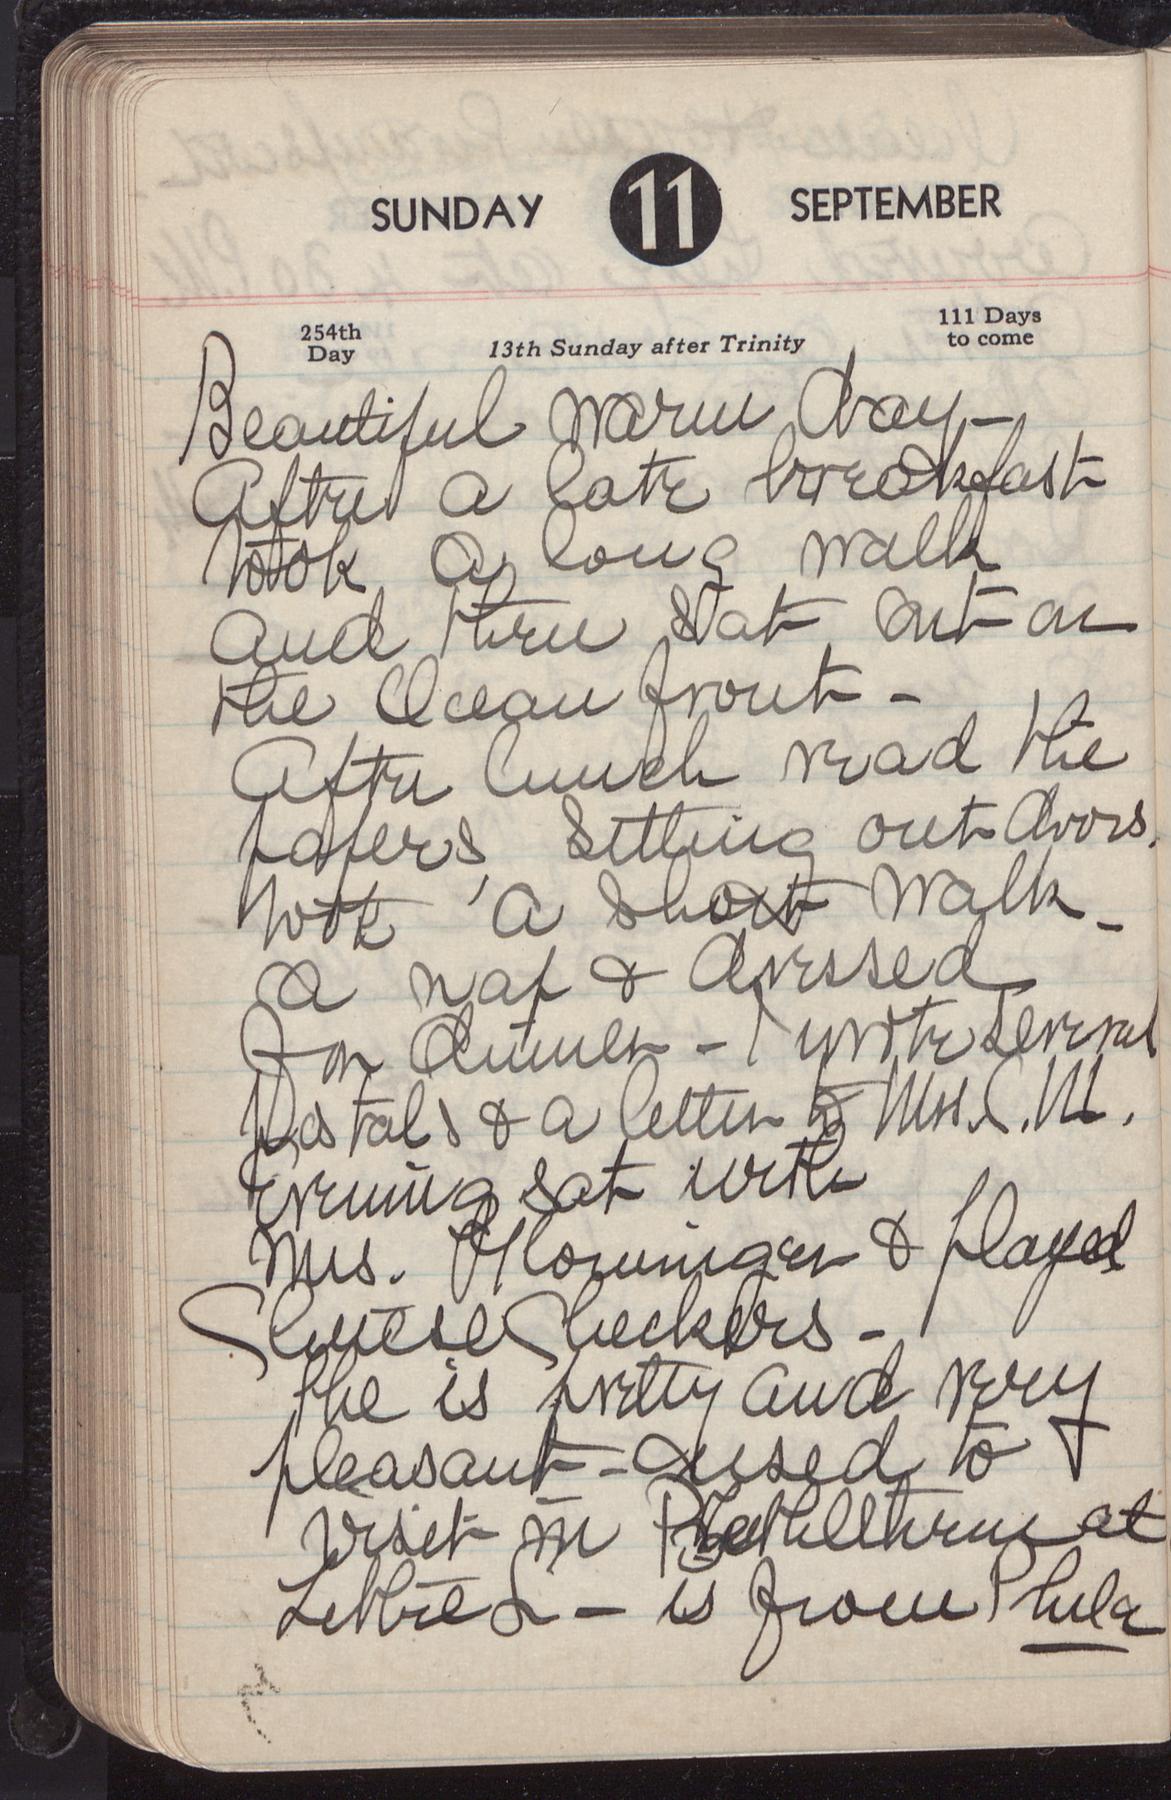 SUNDAY 11 SEPTEMBER
254th Day 13th Sunday after Trinity 111 Days to come
Beautiful warm day -
After a late breakfast
took a long walk
and then sat out on
the Ocean front -
After lunch read the
papers, sitting out doors.
took a short walk -
a nap & dressed
for dinner - I wrote several
postals & a letter to Mrs. C. M.
evening sat with
Mrs. & played
Chinese Checkers -
She is pretty and very
pleasant - used to
visit in Bethlehem at
- is from Phila